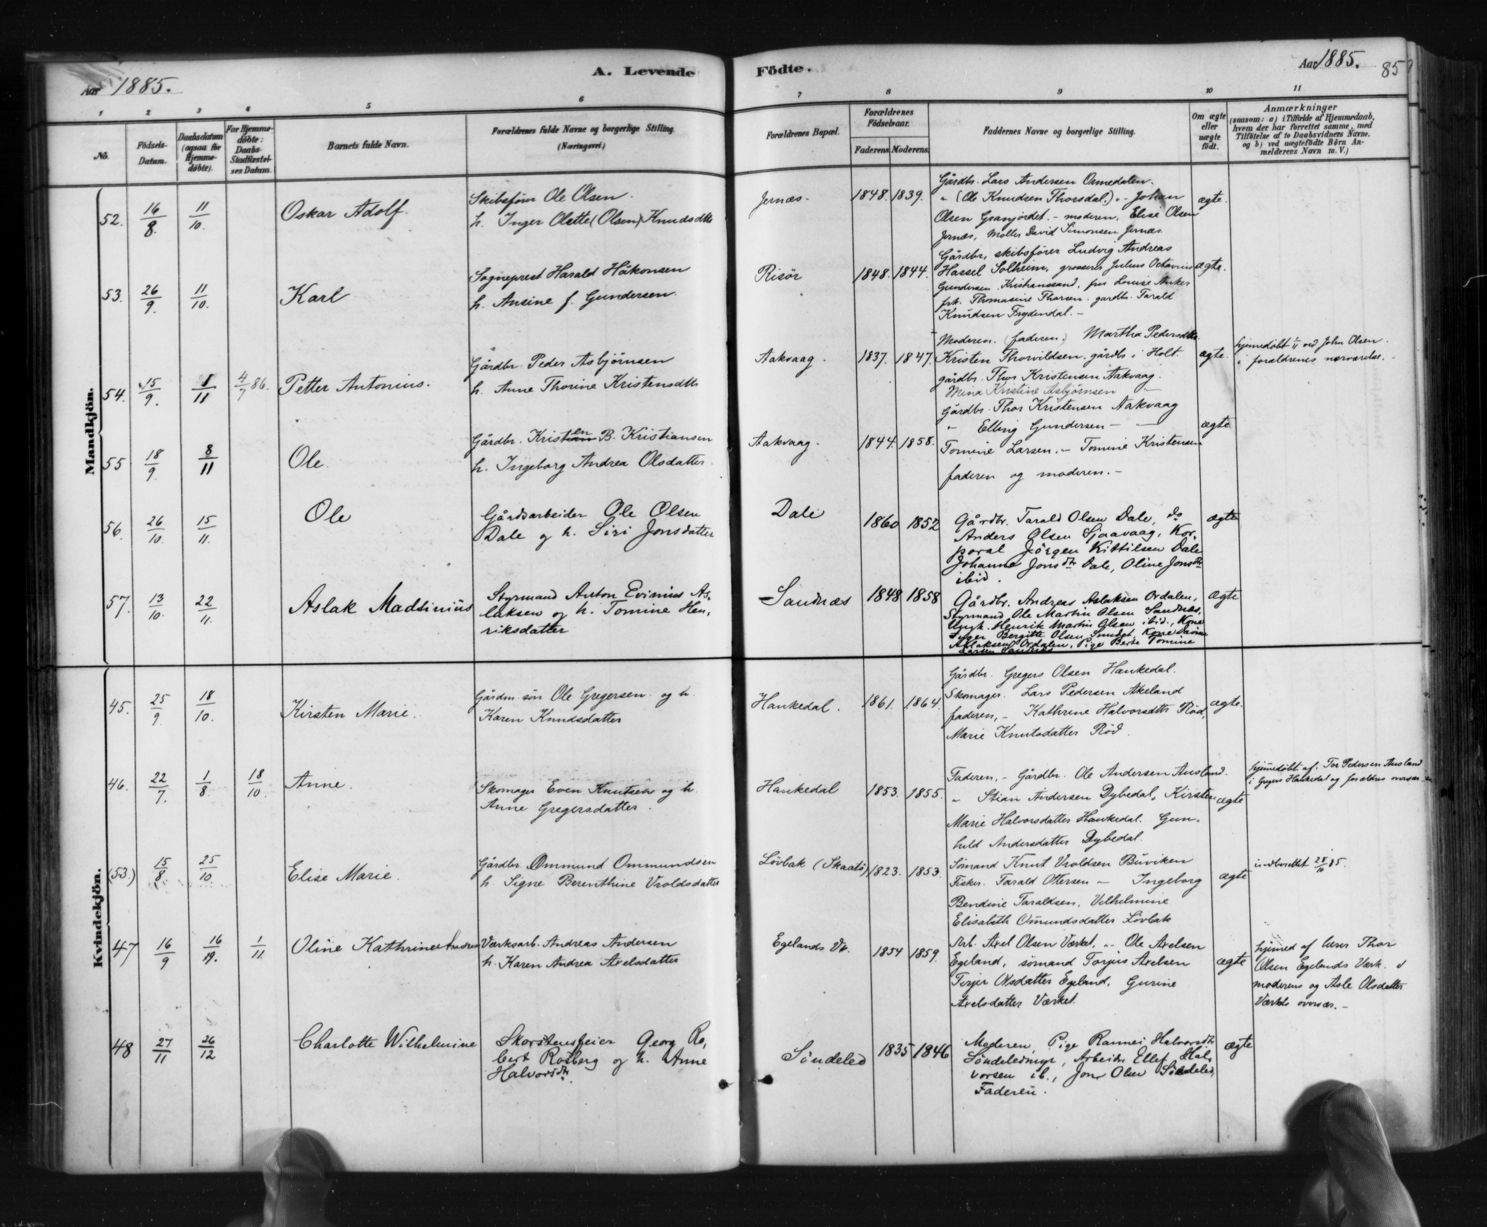 Aar 1885.
A. Levende
Födte.
Aar 1885.
85
1 2 3 4 5 6 7 8 9 10 11
No.
Födsels-
Datum.
Daabsdatum
(ogsaa for
Hjemme-
døbte).
For Hjemme-
døbte:
Daabs-
Stadfæstel-
ses Datum.
Barnets fulde Navn.
Forældrenes fulde Navne og borgerlige Stilling.
(Næringsvei.)
Forældrenes Bopæl.
Forældrenes
Födselsaar.
Faderens. Moderens.
Faddernes Navne og borgerlige Stilling.
Om ægte
eller
uægte
født.
Anmærkninger
(saasom: a) i Tilfælde af Hjemmedaab,
hvem der har forrettet samme, med
Tilföielse af to Daabsvidners Navne.
og b) ved uægtefödte Börn An-
melderens Navn m. V.)
Mandkjön.
52. 16/8. 11/10. Oskar Adolf.
Skibsförer Ole Olsen.
h. Inger Olette (Olsen) Knudsdtr
Jernæs. 1848. 1839.
Gårdbr. Lars Andersen Ormedalen.
" (Ole Knudsen Thorsdal.) " Johan
Olsen Granjordet. - moderen, Elise Olsen
Jernæs, Möller David Simonsen Jernæs
ægte.
53. 26/9. 11/10. Karl
Sogneprest Harald Håkonsen
h. Ansine f. Gundersen.
Risör 1848. 1844.
Gårdbr, skibsförer Ludvig Andreas
Hassel Solheim, grosserer Julius Octavius
Gundersen Kristianssand, frue Louise Anker
frk. Thomasine Thorsen. gårdbr. Tarald
Knudsen Frydendal. -
ægte.
54. 15/9. 1/11 4/7 86. Petter Antonius.
Gårdbr. Peder Asbjörnsen
h. Anne Thorine Kristensdtr
Aakvaag. 1837. 1847.
Moderen. (faderen.) Martha Pedersdtr
Kristen Thorvildsen. gårdbr i Holt
gårdbr. Thor Kristensen Aakvaag.
Mina Kristine Asbjörnsen
ægte.
hjemmedöbt ved John Olsen.
i forældrenes nærværelse. -
55 18/9. 8/11 Ole
Gårdbr. Kristen B. Kristiansen
h. Ingeborg Andrea Olsdatter.
Aakvaag. 1844. 1858.
Gårdbr. Thor Kristensen Aakvaag
" Elling Gundersen -
Tomine Larsen. - Tomine Kristensen
faderen og moderen. -
ægte
56. 26/10. 15/11. Ole
Gårdsarbeider Ole Olsen
Dale og h. Siri Jonsdatter
Dale 1860 1852
Gårdbr. Tarald Olsen Dale, do
Anders Olsen Sjaavaag, Kor,
poral Jörgen Kittilsen Dale
Johanne Jonsdtr Dale, Oline Jonsdtr
ibid.
ægte
57. 13/10. 22/11. Aslak Madtinius
Styrmand Anton Evinius As-
laksen og h. Tomine Hen,
riksdatter
Sandnæs 1848 1858
Gårdbr. Andreas Aslaksen Ordalen,
Styrmand Ole Martin Olsen Sandnæs,
Ungk. Henrik Martin Olsen ibid., Kone
Inger Bergitte Olsen Sundet, Kone
Aslaksen Ordalen, Pige Berte Tomine
Larsen Sandnæs
ægte
Kvindekjön.
45. 25/9 18/10. Kirsten Marie.
Gårdm. sön Ole Gregersen og h.
Karen Knudsdatter
Haukedal. 1861. 1864.
Gårdbr. Gregers Olsen Haukedal.
Skomager. Lars Pedersen Akeland
faderen, - Kathrine Halvorsdtr Röd,
Marie Knutsdatter Röd.
ægte.
46. 22/7. 1/8 18/10. Anne.
Skomager Even Knutsen og h.
Anne Gregersdatter.
Haukedal 1853. 1855.
Faderen, - Gårdbr. Ole Andersen Ausland.
" Stian Andersen Dybedal, Kirsten
Marie Halvorsdatter Haukedal. Gun,
hild Andersdatter Dybedal.
ægte
hjemmedöbt af Tor Pedersen Ausland
(53) 15/8 25/10. Elise Marie.
Gårdbr. Ommund Ommundsen
h. Signe Berenthine Vroldsdatter
Lövbak (Skaatö) 1823. 1853.
Sömand Knut Vroldsen Buviken
Fisker. Tarald Ottersen - Ingeborg
Bendine Taraldsen, Vilhelmine
Elisabeth Omundsdatter Lövbak
ægte
indberettet 28/10 85.
47 16/9 16/10. 1/11 Oline Kathrine
Værksarb. Andreas Andersen
h. Karen Andrea Axelsdatter
Egelands Vk. 1854 1859.
Arb. Axel Olsen Værket. " Ole Axelsen
Egeland, sömand Torjus Axelsen
Terjer Olsdatter Egeland, Gurine
Axelsdatter Værket
ægte
hjemmed af lærer Thor
Olsen Egelands Værk. i
moderens og Asle Olsdatter
Værkets overvær. -
48 27/11 26/12 Charlotte Wilhelmine
Skorstensfeier Georg Ro,
bert Rosberg og h. Anne
Halvorsdtr.
Söndeled 1835 1846
Moderen, Pige Rannei Halvorsdtr
Söndeledmyr, Arbeider Ellef Hal,
vorsen ib., Jon Olsen Söndeled,
Faderen.
ægte